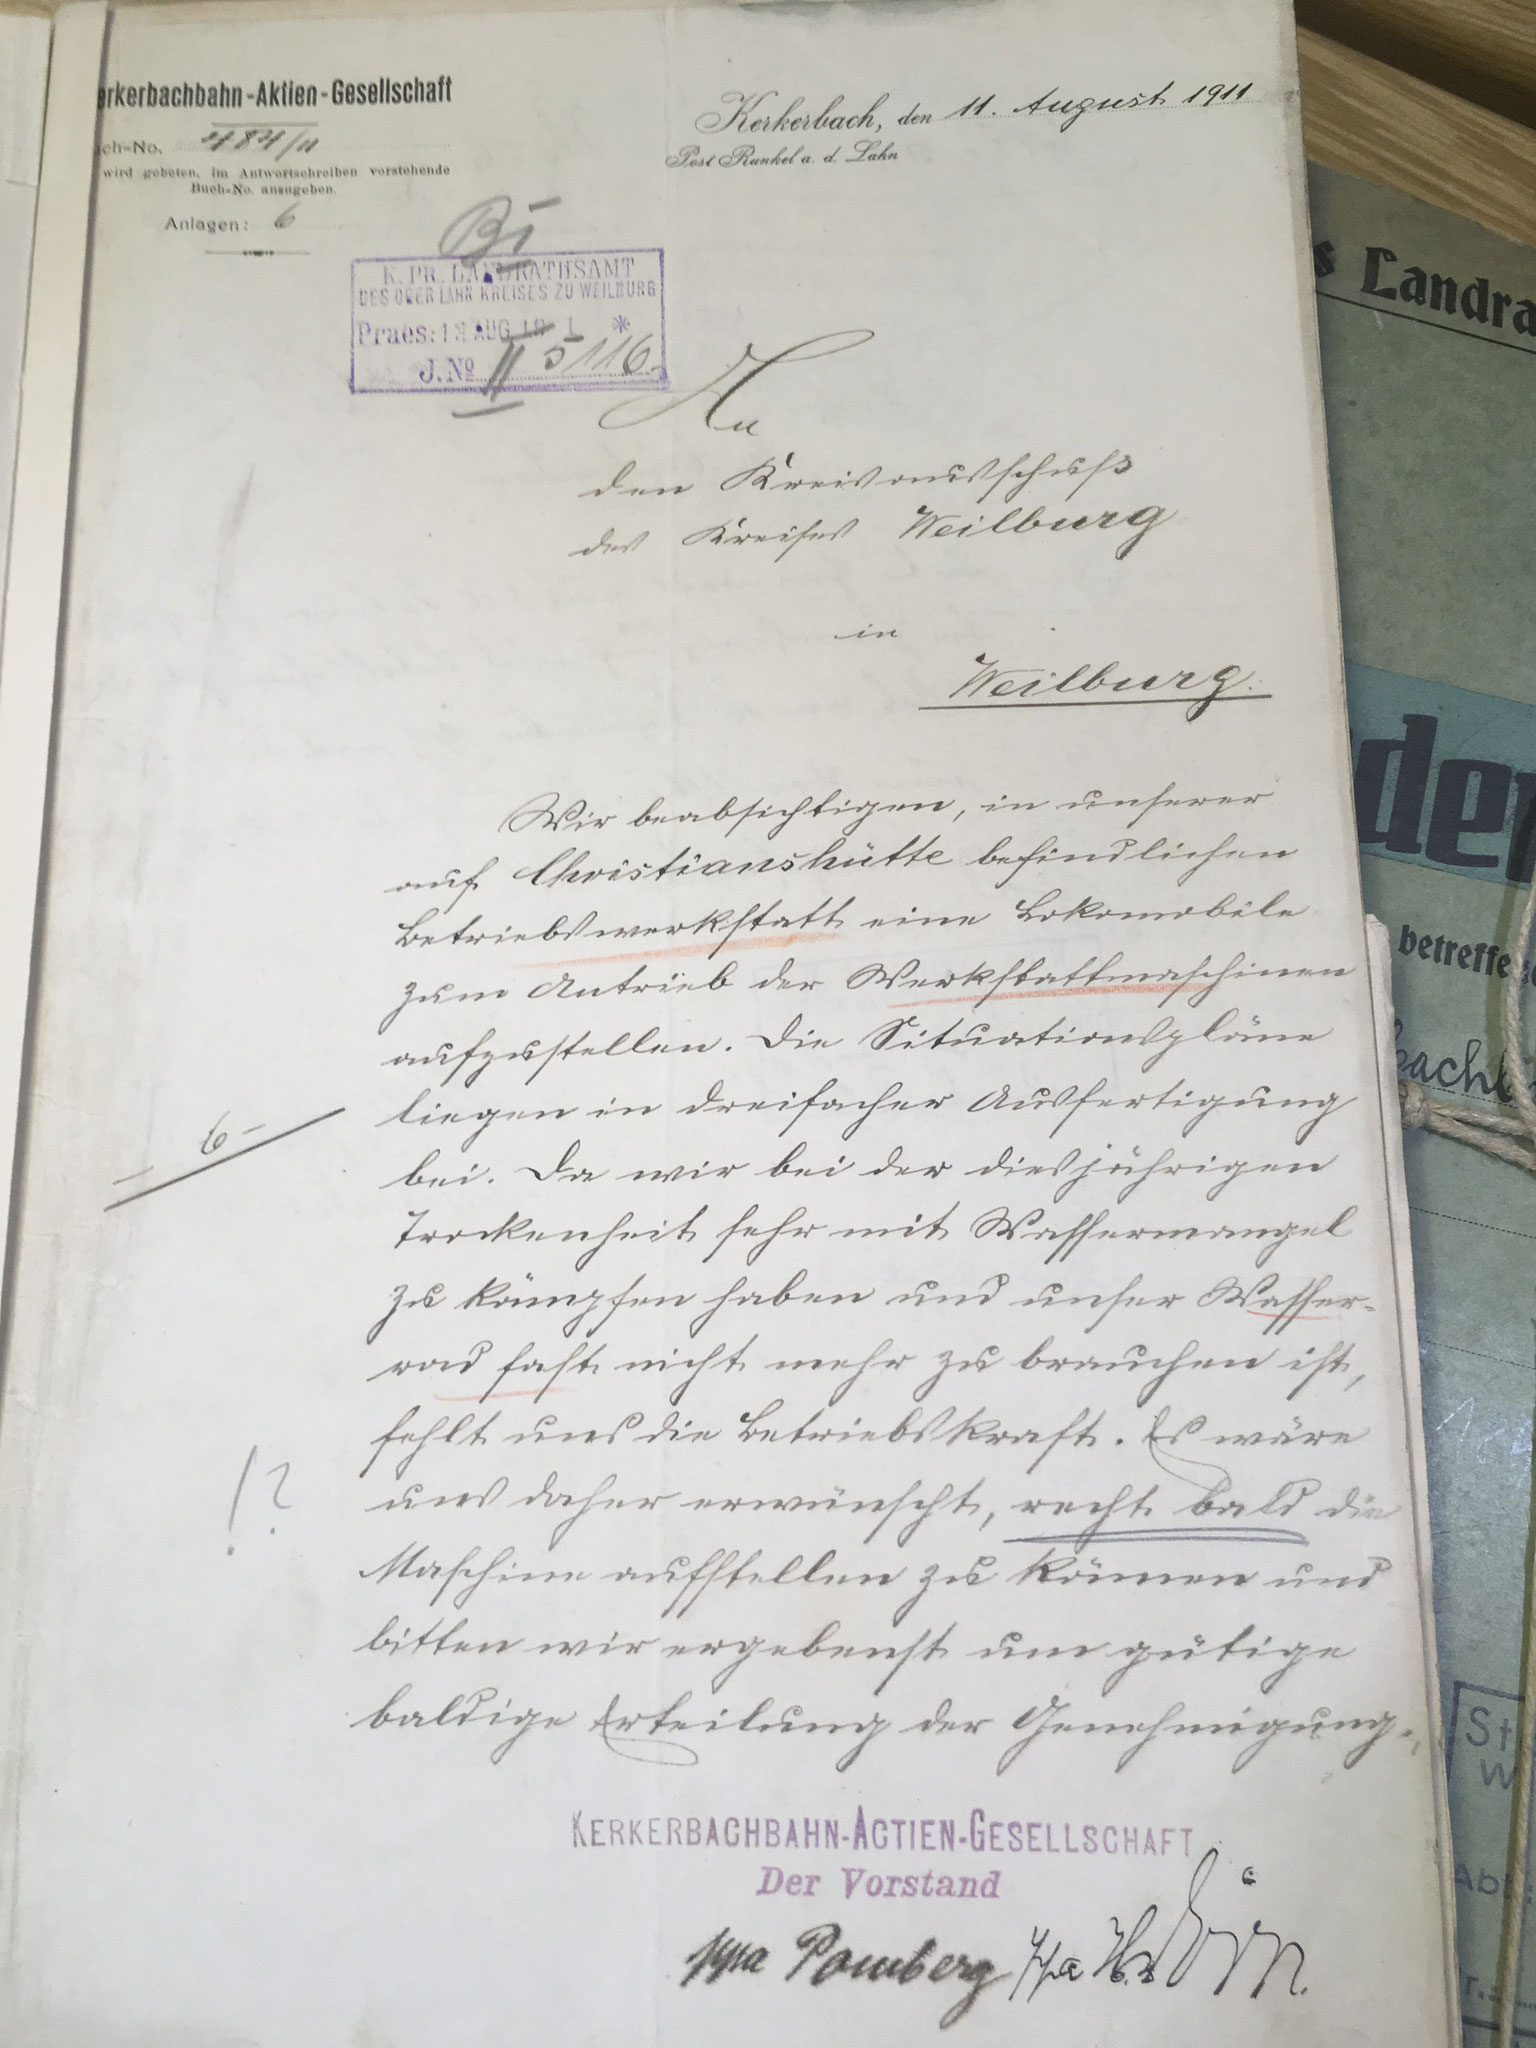 erkerbachbahn-Aktien-Gesellschaft
ch-No. 484/11
wird gebeten, im Antwortschreiben vorstehende
Buch-No. anzugeben.
Anlagen: 6
Kerkerbach, den 11. August 1911
Post Runkel a. d. Lahn
K. PR. LANDRATHSAMT
DES OBERLAHNKREISES ZU WEILBURG
Praes: AUG *
J. No II 5116.
An
den Kreisausschuß
des Kreises Weilburg
in
Weilburg.
Wir beabsichtigen, in unserer
auf Christianshütte befindlichen
Betriebswerkstatt eine Lokomobile
zum Antrieb der Werkstattmaschinen
aufzustellen. Die Situationspläne
liegen in dreifacher Ausfertigung
6
bei. Da wir bei der diesjährigen
Trockenheit sehr mit Wassermangel
zu kämpfen haben und unser Wasser-
rad fast nicht mehr zu brauchen ist,
fehlt uns die Betriebskraft. Es wäre
!?
uns daher erwünscht, recht bald die
Maschine aufstellen zu können und
bitten wir ergebenst um gütige
baldige Erteilung der Genehmigung.
KERKERBACHBAHN-ACTIEN-GESELLSCHAFT
Der Vorstand
ppa Pomberg ppa
s Landra
der
betreffe
bachb
St
W
Ab